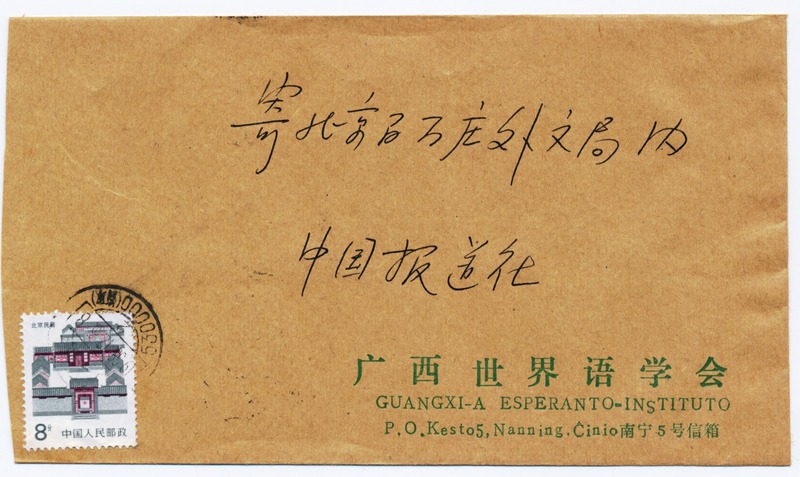 寄北京百万庄外文局内
中国报道社
北京民居
8分
中国人民邮政
广西世界语学会
GUANGXI-A ESPERANTO-INSTITUTO
P.O.Kesto5,Nanning.Ĉinio南宁5号信箱